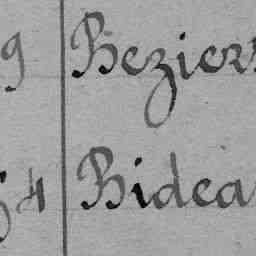 9 Beziers
4 Bidea